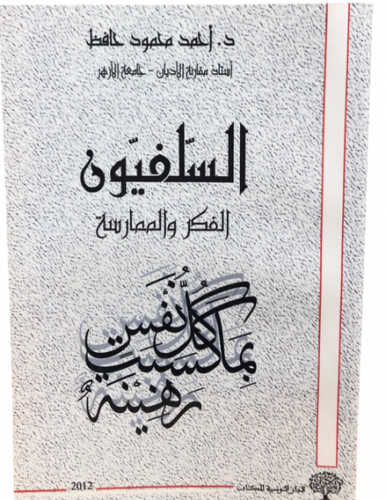 د. أحمد محمود حافظ
أستاذ مقارنة الأديان - جامعة الأزهر
السلفيّون
الفكر والممارسة
كُلُّ نَفْسٍ
بِمَا كَسَبَتْ
رَهِينَةٌ
2012
الدار التونسية للكتاب